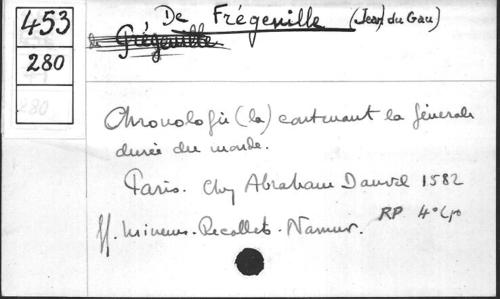 453
280
De Frégeville (Jean du Gau)
de Frégeville
Chronologie (la) contenant la générale
durée du monde.
Paris. Chez Abraham Dauvel 1582
RP 4°
ff. mineurs. Recollets. Namur.